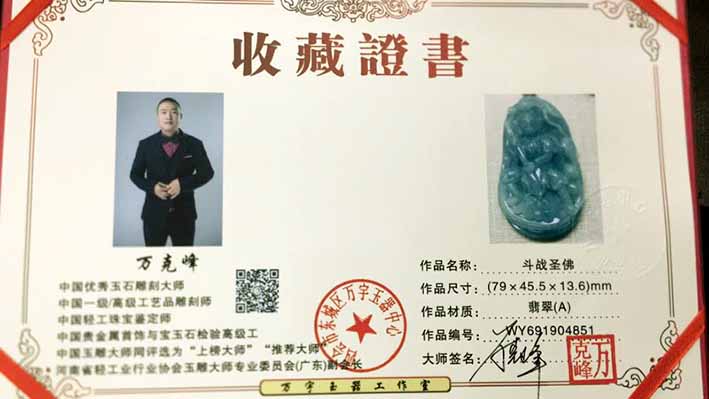 收藏證書
万克峰
中国优秀玉石雕刻大师
中国一级/高级工艺品雕刻师
中国轻工珠宝鉴定师
中国贵金属首饰与宝玉石检验高级工
中国玉雕大师同评选为“上榜大师”“推荐大师”
河南省轻工业行业协会玉雕大师专业委员会(广东)副会长
作品名称: 斗战圣佛
作品尺寸: (79×45.5×13.6)mm
作品材质: 翡翠(A)
作品编号: WY691904851
大师签名:
万克峰
市东城区万字玉器中心
万字玉器工作室